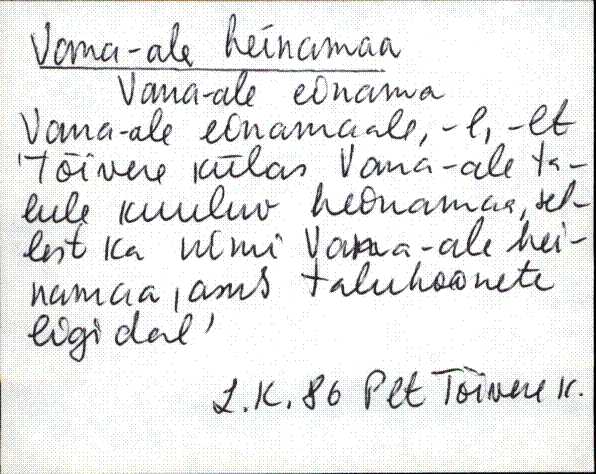 Vana-ale heinamaa
Vana-ale einama
Vana-ale einamaale, -l, -lt
'Tõivere külas Vana-ale ta-
lule kuuluv heinamaa, sel-
lest ka nimi Vana-ale hei-
namaa, asus taluhoonete
ligidal'
L.K. 86 Plt Tõivere k.